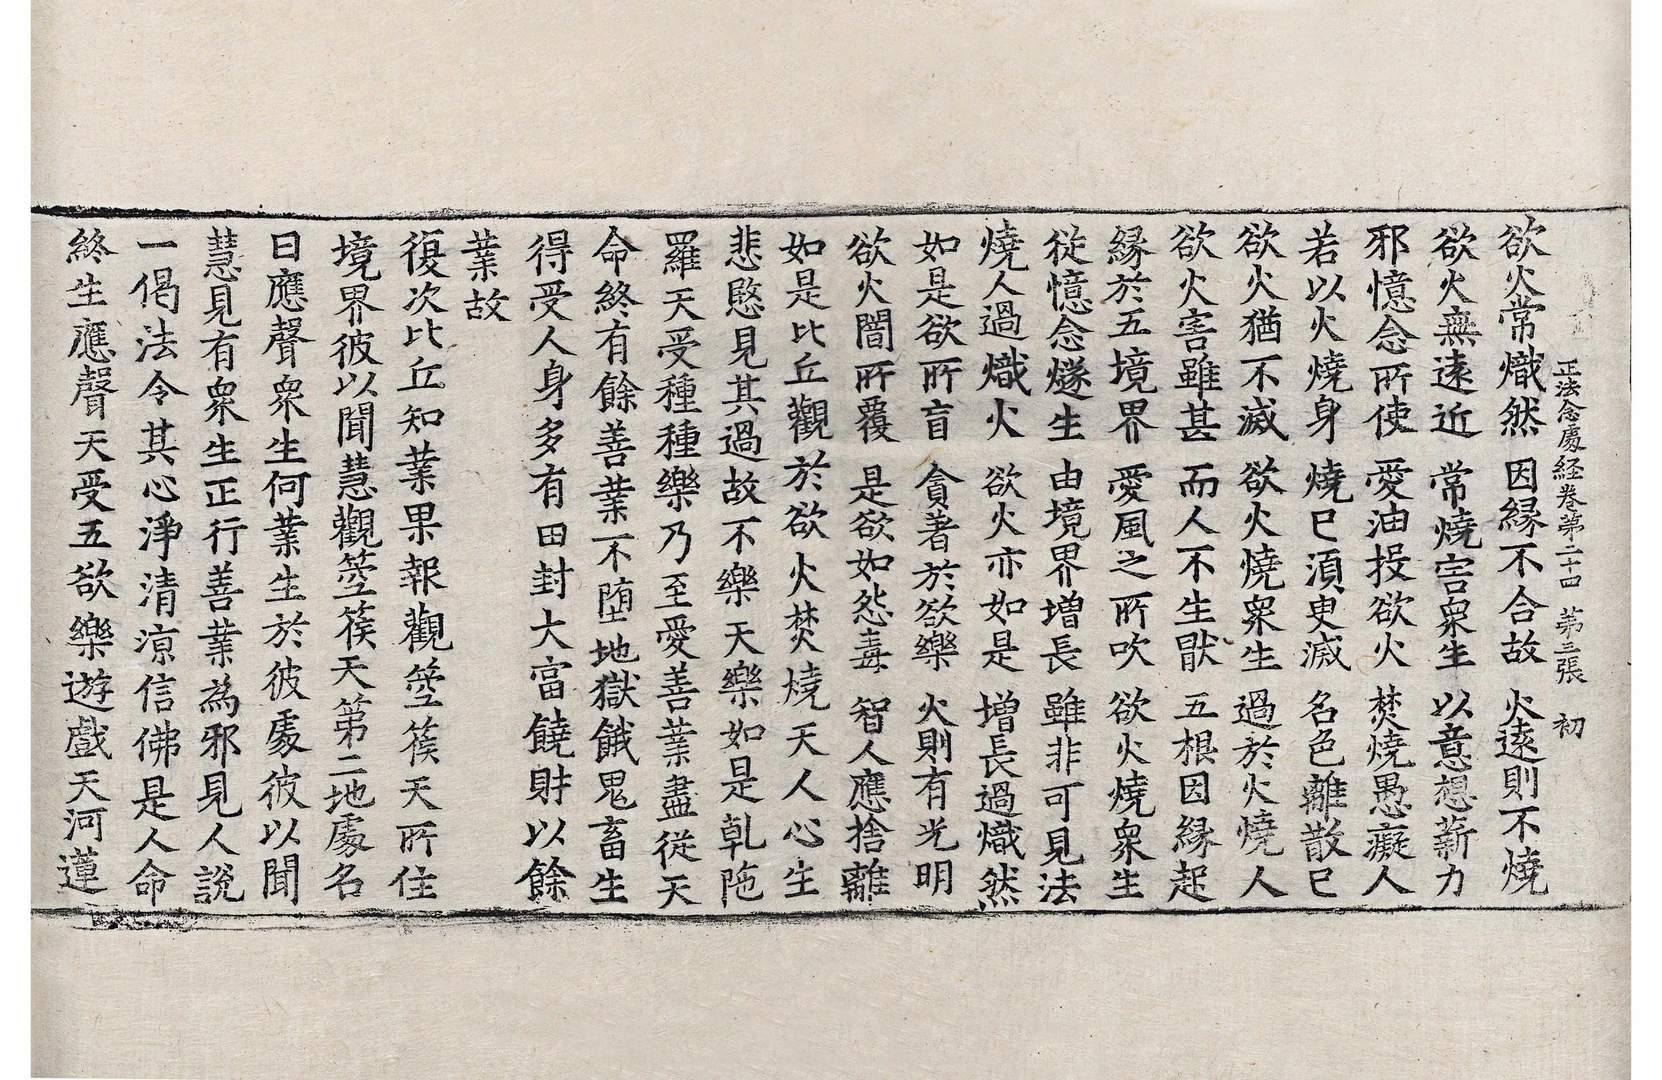 正法念處経卷苐二十四 苐三張 初
欲火常熾然 因緣不合故 火遠則不燒
欲火無遠近 常燒害衆生 以意想薪力
邪憶念所使 愛油投欲火 焚燒愚癡人
若以火燒身 燒已湏臾滅 名色離散已
欲火猶不滅 欲火燒衆生 過於火燒人
欲火害雖甚 而人不生猒 五根因緣起
緣於五境界 愛風之所吹 欲火燒衆生
從憶念燧生 由境界增長 雖非可見法
燒人過熾火 欲火亦如是 增長過熾然
如是欲所盲 貪著於欲樂 火則有光明
欲火闇所覆 是欲如怨毒 智人應捨離
如是比丘觀於欲火焚燒天人心生
悲愍見其過故不樂天樂如是乹陁
羅天受種種樂乃至愛善業盡從天
命終有餘善業不墮地獄餓鬼畜生
得受人身多有田封大富饒財以餘
業故
復次比丘知業果報觀箜篌天所住
境界彼以聞慧觀箜篌天第二地處名
曰應聲衆生何業生於彼處彼以聞
慧見有衆生正行善業為邪見人說
一偈法令其心淨清涼信佛是人命
終生應聲天受五欲樂遊戲天河蓮